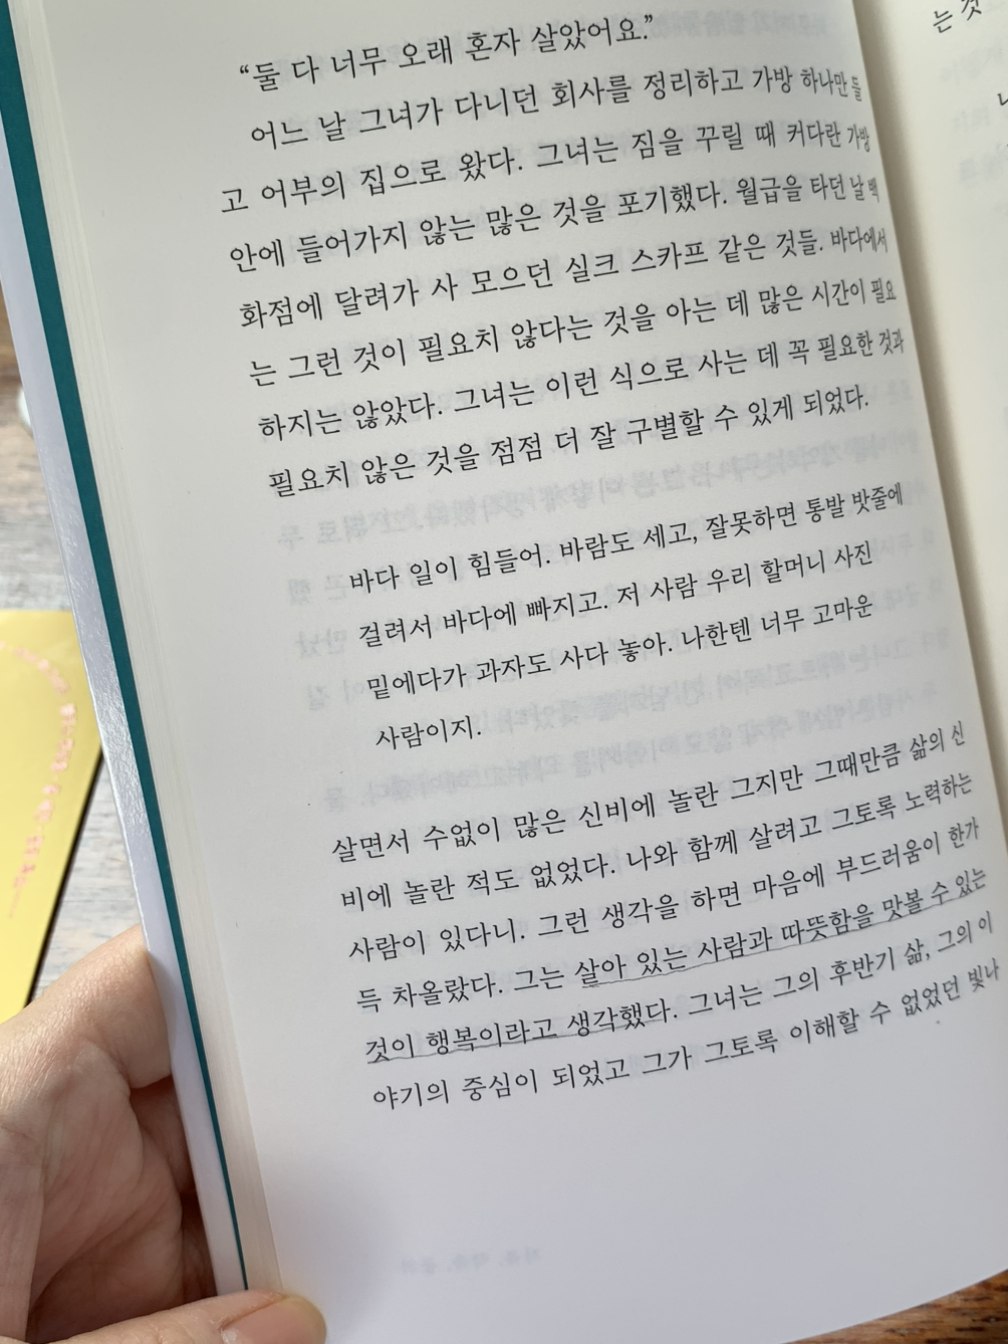 “둘 다 너무 오래 혼자 살았어요.”
어느 날 그녀가 다니던 회사를 정리하고 가방 하나만 들
고 어부의 집으로 왔다. 그녀는 짐을 꾸릴 때 커다란 가방
안에 들어가지 않는 많은 것을 포기했다. 월급을 타던 날 백
화점에 달려가 사 모으던 실크 스카프 같은 것들. 바다에서
는 그런 것이 필요치 않다는 것을 아는 데 많은 시간이 필요
하지는 않았다. 그녀는 이런 식으로 사는 데 꼭 필요한 것과
필요치 않은 것을 점점 더 잘 구별할 수 있게 되었다.
바다 일이 힘들어. 바람도 세고, 잘못하면 통발 밧줄에
걸려서 바다에 빠지고. 저 사람 우리 할머니 사진
밑에다가 과자도 사다 놓아. 나한텐 너무 고마운
사람이지.
살면서 수없이 많은 신비에 놀란 그지만 그때만큼 삶의 신
비에 놀란 적도 없었다. 나와 함께 살려고 그토록 노력하는
사람이 있다니. 그런 생각을 하면 마음에 부드러움이 한가
득 차올랐다. 그는 살아 있는 사람과 따뜻함을 맛볼 수 있는
것이 행복이라고 생각했다. 그녀는 그의 후반기 삶, 그의 이
야기의 중심이 되었고 그가 그토록 이해할 수 없었던 빛나
는 것